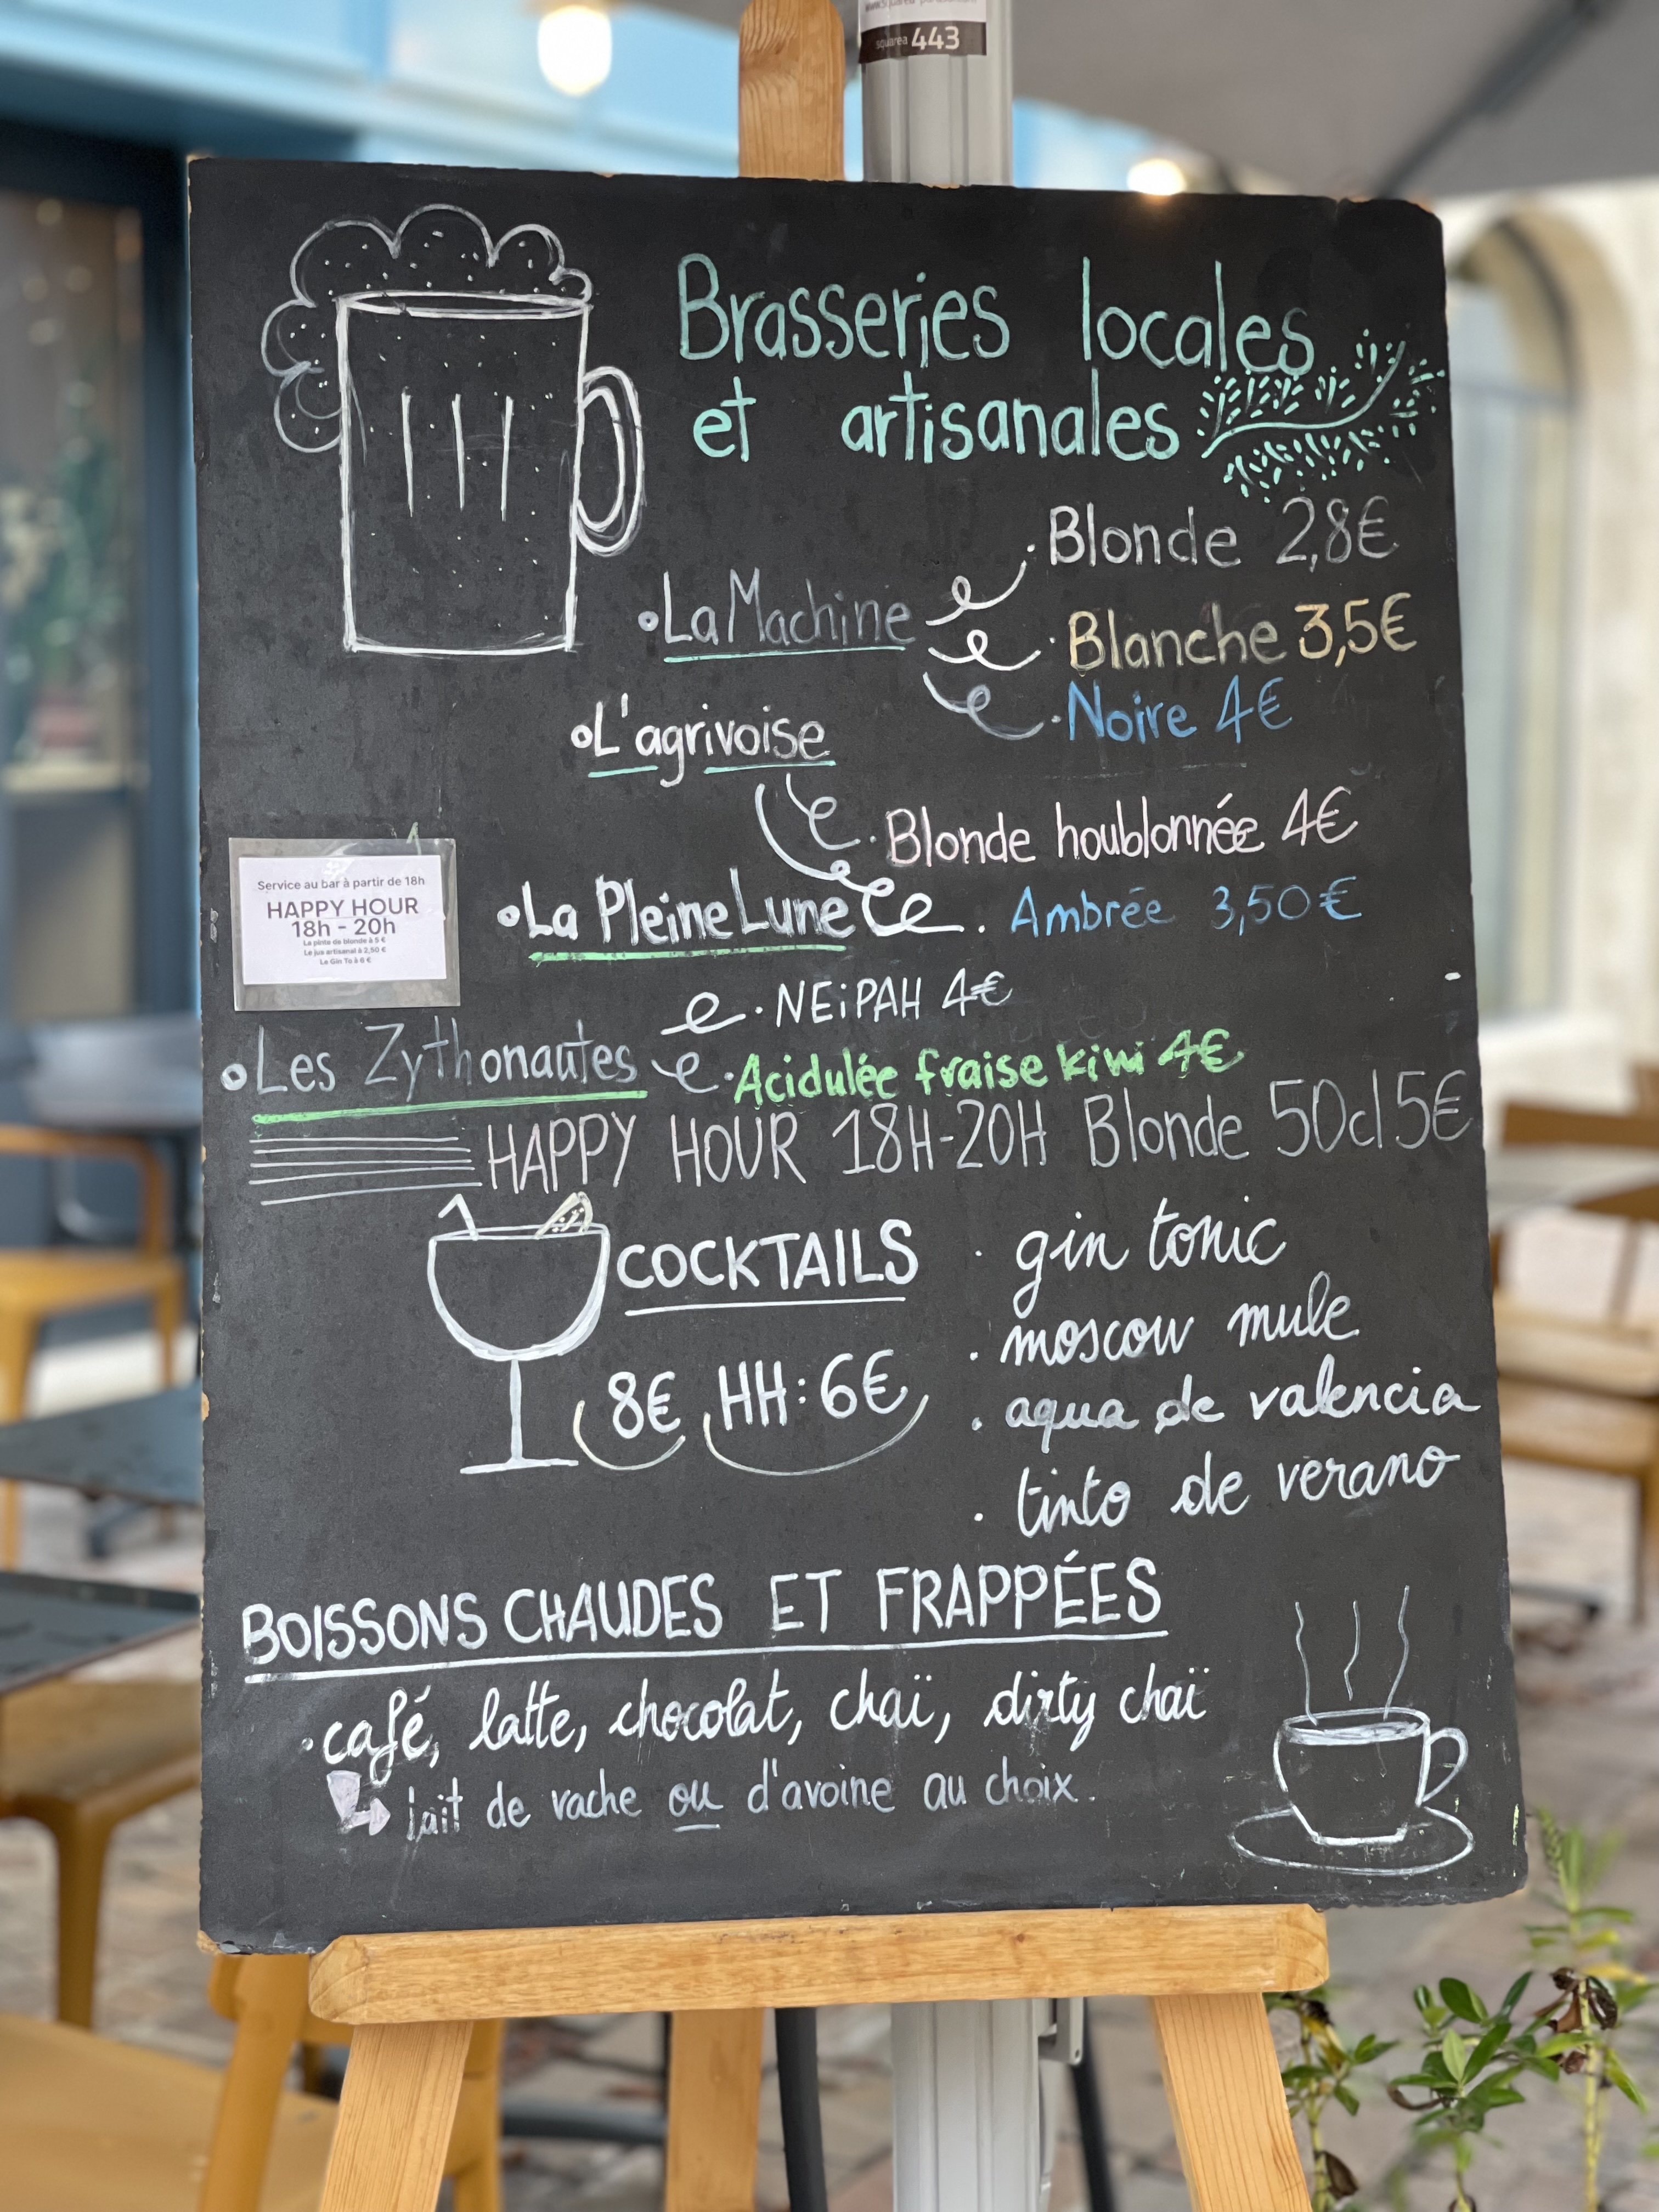 squarea 443
Brasseries locales
et artisanales
Blonde 2,8€
La Machine
Blanche 3,5€
Noire 4€
L'agrivoise
Blonde houblonnée 4€
La Pleine Lune
Ambrée 3,50€
Service au bar à partir de 18h
HAPPY HOUR
18h - 20h
La pinte de blonde à 5 €
Le jus artisanal à 2,50 €
Le Gin To à 6 €
NEiPAH 4€
Les Zythonautes
Acidulée fraise kiwi 4€
HAPPY HOUR 18H-20H Blonde 50cl 5€
COCKTAILS
gin tonic
moscow mule
8€ HH: 6€
aqua de valencia
tinto de verano
BOISSONS CHAUDES ET FRAPPÉES
café, latte, chocolat, chaï, dirty chaï
lait de vache ou d'avoine au choix.